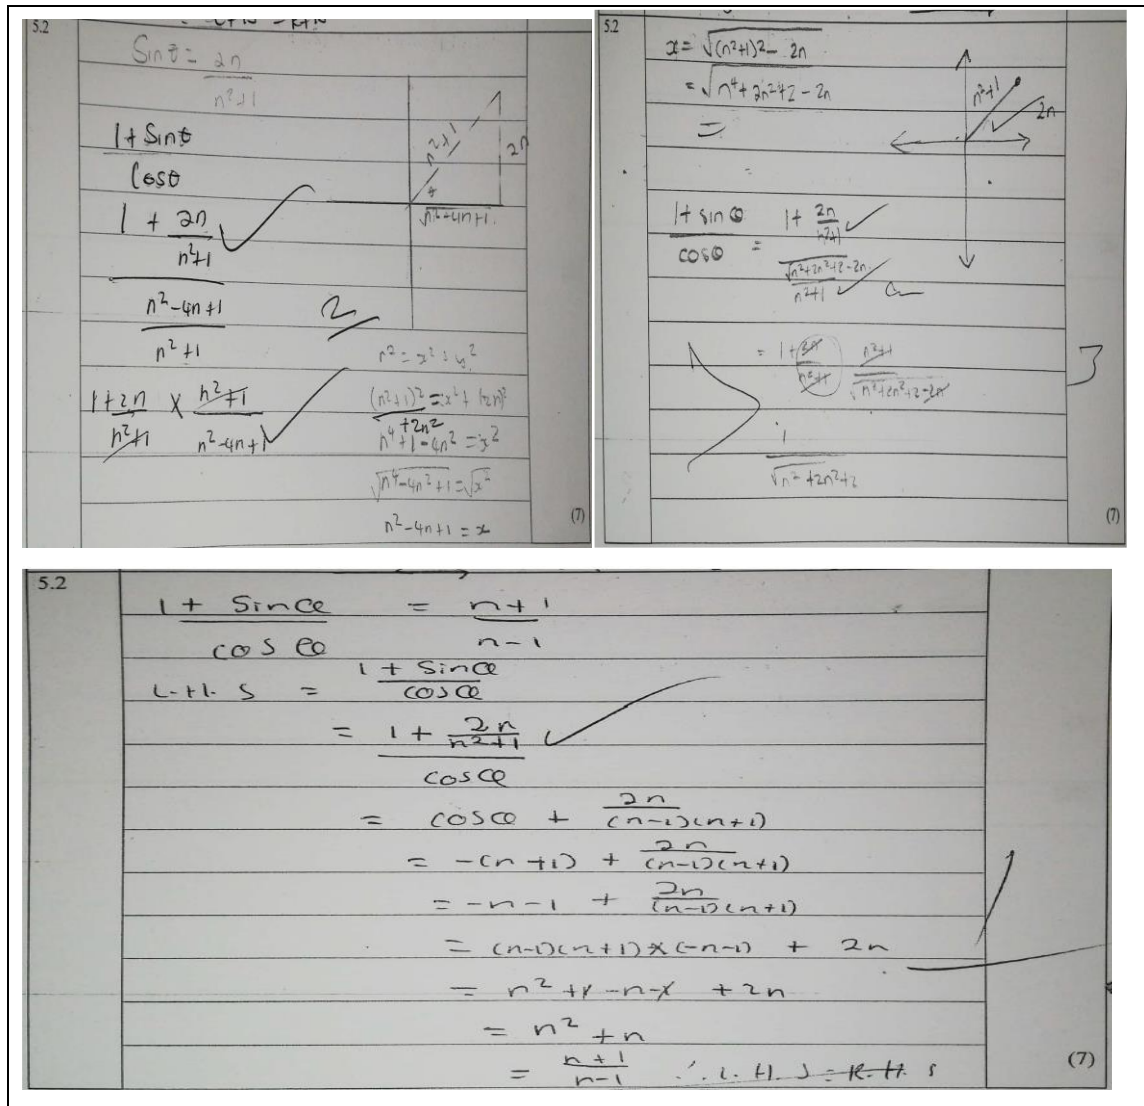 5.2
Sin θ = 2n
n²+1
1 + Sin θ
Cos θ
1 + 2n
n²+1
n² - 4n + 1
n² + 1
1 + 2n × n² + 1
n² + 1 n² - 4n + 1
n² + 1
2n
√n² - 4n + 1
2
(n²+1)² = x² + (2n)²
+2n²
n⁴ + 1 - 4n² = x²
√n⁴ - 4n² + 1 = √x²
n² - 4n + 1 = x
(7)
5.2
x = √(n²+1)² - 2n
= √n⁴ + 2n² + 2 - 2n
=
n²+1
2n
1 + sin θ = 1 + 2n
n²+1
cos θ √n² + 2n² + 2 - 2n
n²+1
= 1 + 2n n²+1
n²+1 √n² + 2n² + 2 - 2n
1
√n² + 2n² + 2
3
(7)
5.2
1 + Sin θ = n + 1
cos θ n - 1
L.H.S = 1 + sin θ
cos θ
= 1 + 2n
n²+1
cos θ
= cos θ + 2n
(n-1)(n+1)
= -(n+1) + 2n
(n-1)(n+1)
= -n - 1 + 2n
(n-1)(n+1)
= (n-1)(n+1) × (-n-1) + 2n
= n² + 1 - n - 1 + 2n
= n² + n
= n + 1
n - 1 ∴ L.H.S = R.H.S
1
(7)